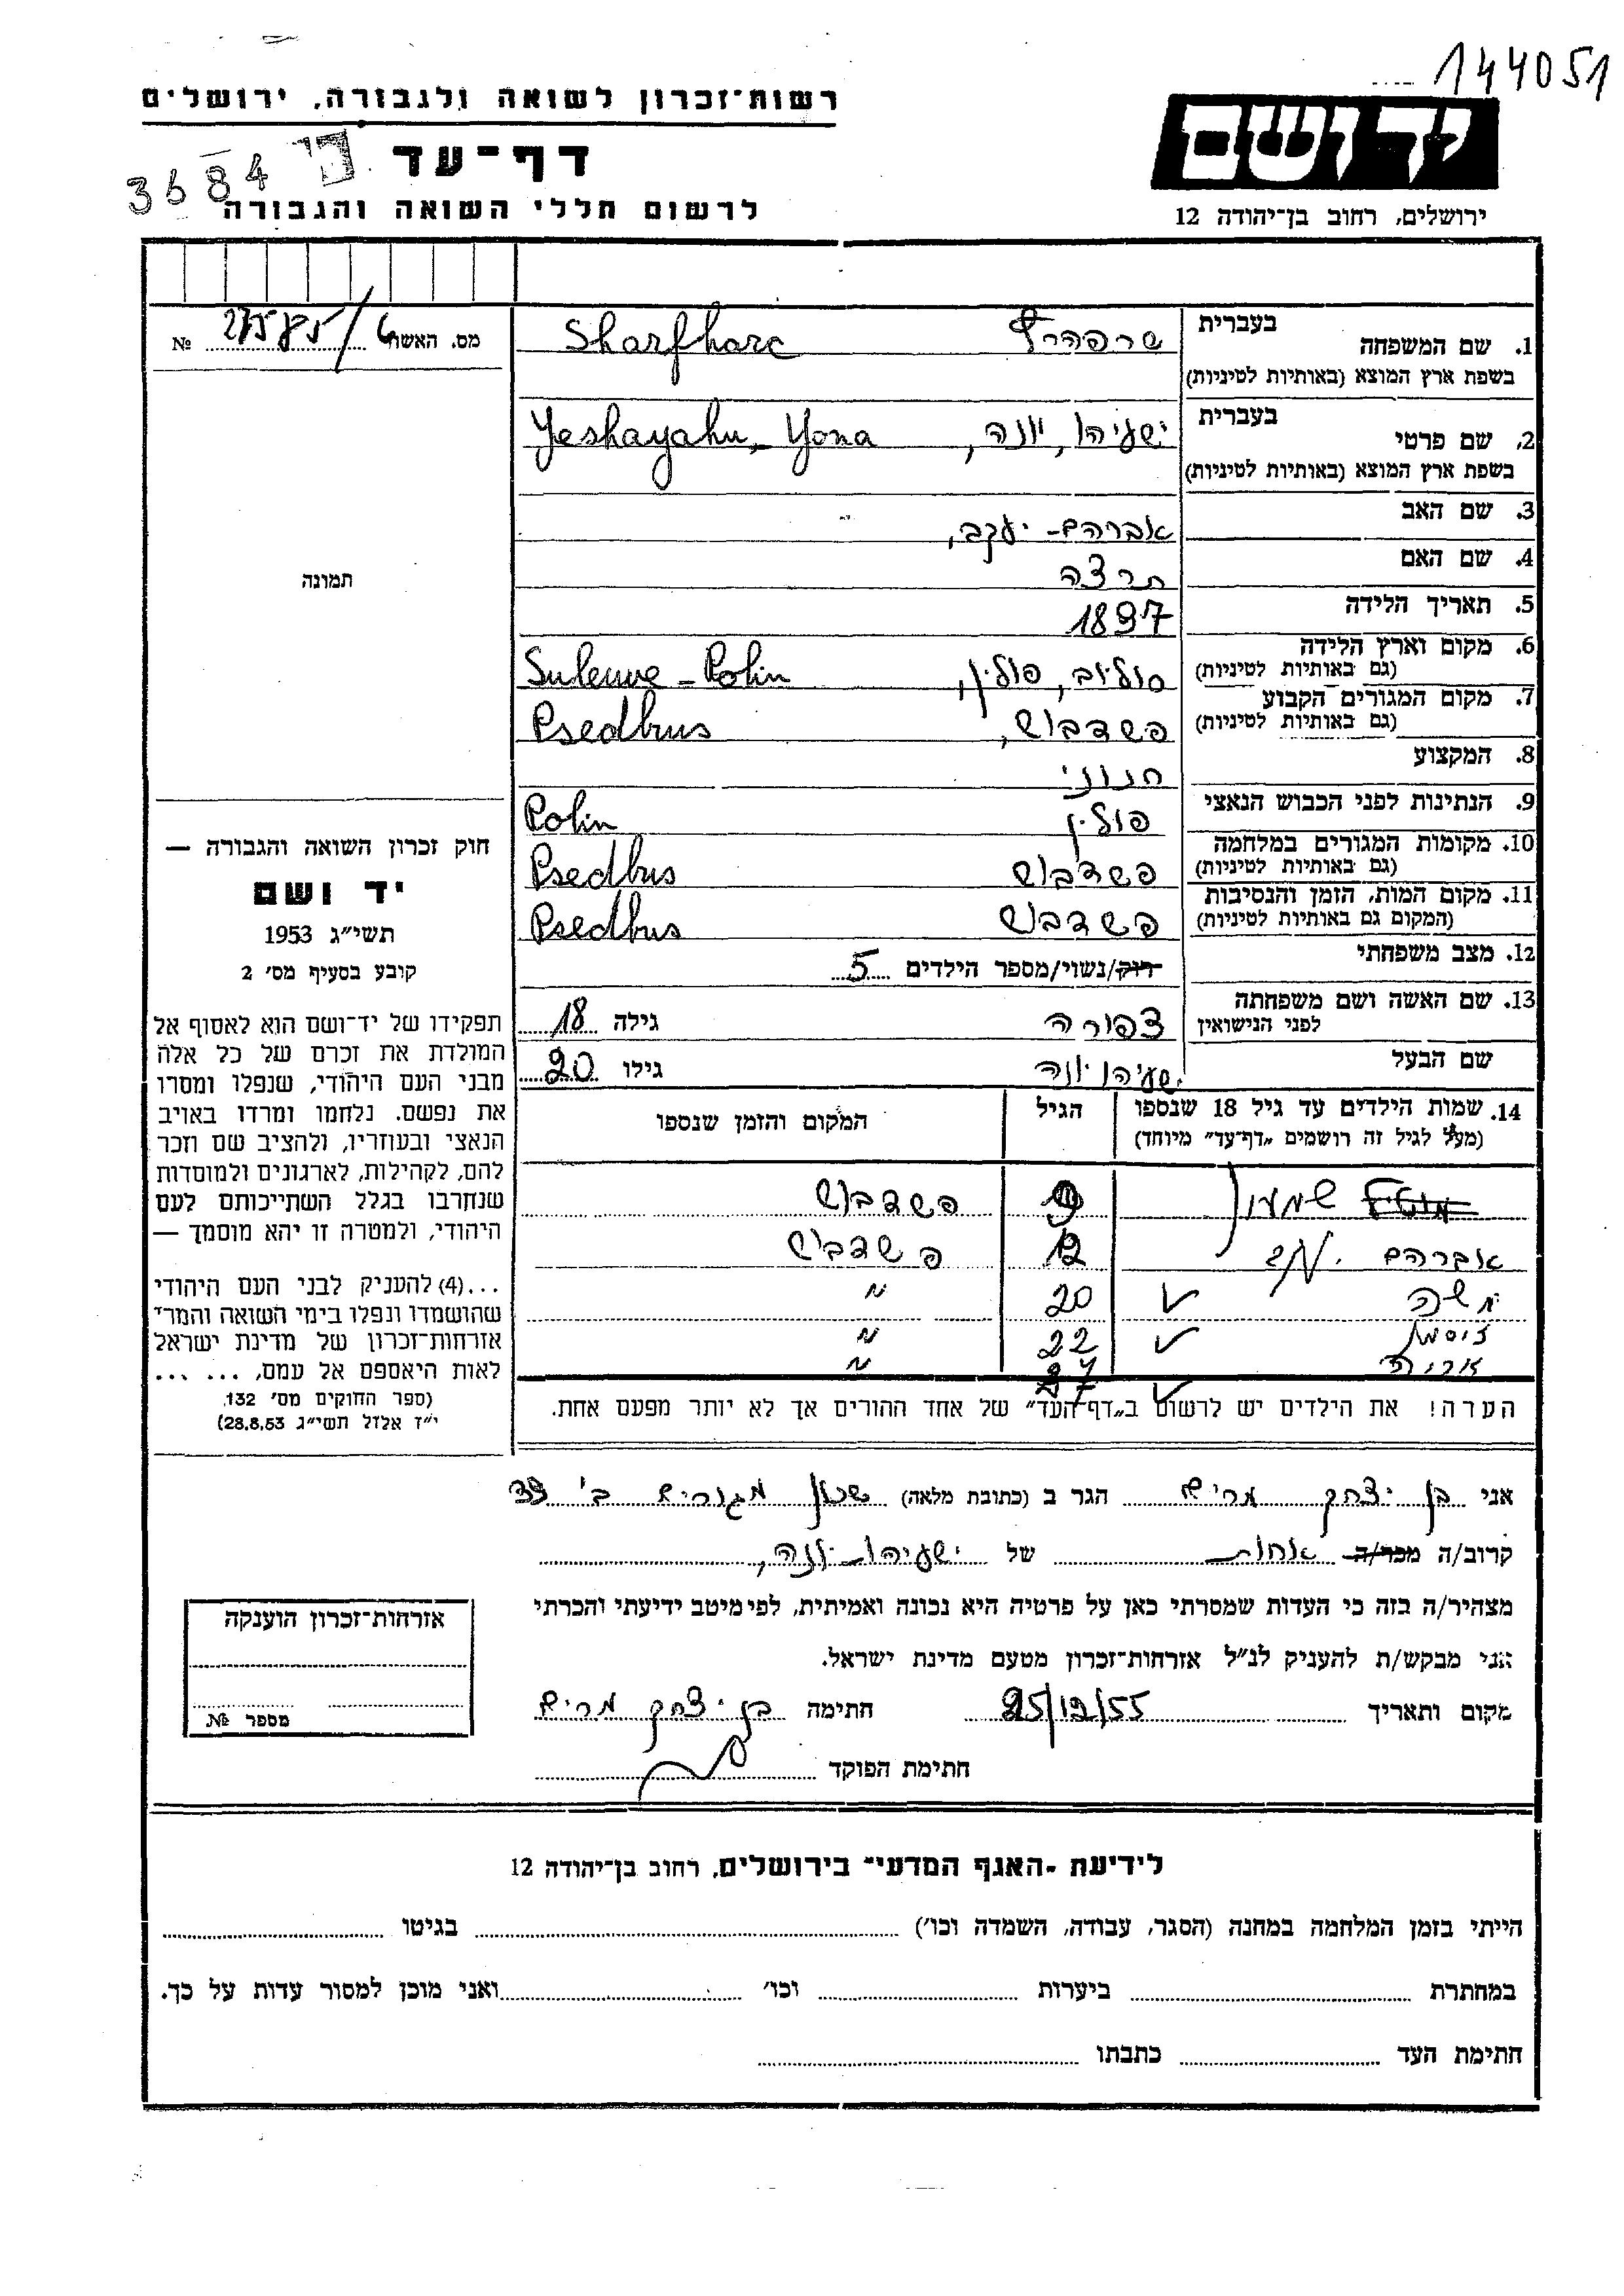 144051
רשות־זכרון לשואה ולגבורה, ירושלים
יד ושם
דף־עד
3684
לרשום חללי השואה והגבורה
ירושלים, רחוב בן־יהודה 12
1. שם המשפחה בעברית שרפהרץ Sharfharc
בשפת ארץ המוצא (באותיות לטיניות)
מס. האשה № 27585/6
2. שם פרטי בעברית ישעיהו, יונה, Yeshayahu, Yona
בשפת ארץ המוצא (באותיות לטיניות)
3. שם האב אברהם - יעקב,
4. שם האם תרצה
תמונה
5. תאריך הלידה 1897
6. מקום וארץ הלידה סוליוב, פולין, Suleuve - Polin
(גם באותיות לטיניות)
7. מקום המגורים הקבוע פשדבוש, Psedbus
(גם באותיות לטיניות)
8. המקצוע חנוני
9. הנתינות לפני הכבוש הנאצי פולין Polin
10. מקומות המגורים במלחמה פשדבוש Psedbus
(גם באותיות לטיניות)
11. מקום המות, הזמן והנסיבות פשדבוש Psedbus
(המקום גם באותיות לטיניות)
12. מצב משפחתי רוק/נשוי/מספר הילדים 5
13. שם האשה ושם משפחתה לפני הנישואין צפורה גילה 18
שם הבעל ישעיהו יונה גילו 20
14. שמות הילדים עד גיל 18 שנספו הגיל המקום והזמן שנספו
(מעל לגיל זה רושמים "דף־עד" מיוחד)
שמעון 9 פשדבוש
אברהם 12 פשדבוש
משה 20 "
זיסמן 22 "
אריה "
הערה! את הילדים יש לרשום ב"דף־העד" של אחד ההורים אך לא יותר מפעם אחת.
חוק זכרון השואה והגבורה —
יד ושם
תשי״ג 1953
קובע בסעיף מס׳ 2
תפקידו של יד־ושם הוא לאסוף אל
המולדת את זכרם של כל אלה
מבני העם היהודי, שנפלו ומסרו
את נפשם. נלחמו ומרדו באויב
הנאצי ובעוזריו, ולהציב שם וזכר
להם, לקהילות, לארגונים ולמוסדות
שנחרבו בגלל השתייכותם לעם
היהודי, ולמטרה זו יהא מוסמך —
...(4) להעניק לבני העם היהודי
שהושמדו ונפלו בימי השואה והמרי
אזרחות־זכרון של מדינת ישראל
לאות היאספם אל עמם, ... ...
(ספר החוקים מס׳ 132,
י״ז אלול תשי״ג 28.8.53)
אני בן יצחק מרים הגר ב (כתובת מלאה) שכון מגורים ב׳ 33
קרוב/ה מכר/ה אחות של ישעיהו יונה,
מצהיר/ה בזה כי העדות שמסרתי כאן על פרטיה היא נכונה ואמיתית, לפי מיטב ידיעתי והכרתי
אני מבקש/ת להעניק לנ״ל אזרחות־זכרון מטעם מדינת ישראל.
מקום ותאריך 25/12/55 חתימה בן יצחק מרים
חתימת הפוקד
אזרחות־זכרון הוענקה
מספר №
לידיעת -האגף המדעי־ בירושלים, רחוב בן־יהודה 12
הייתי בזמן המלחמה במחנה (הסגר, עבודה, השמדה וכו׳) בגיטו
במחתרת ביערות וכו׳ ואני מוכן למסור עדות על כך.
חתימת העד כתבתו